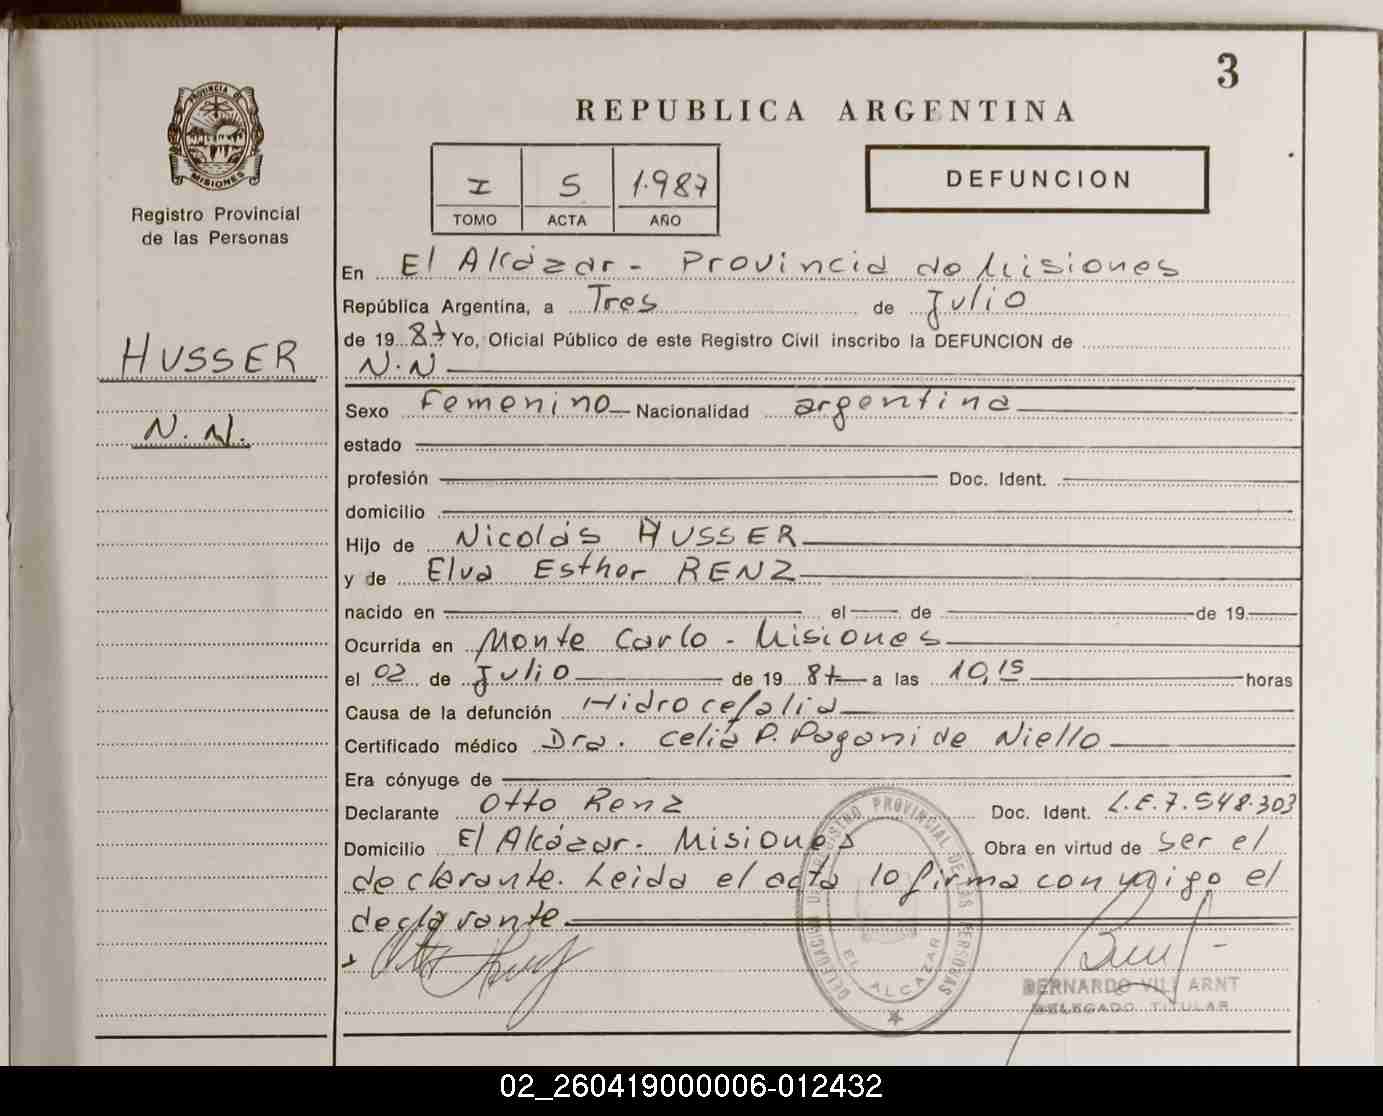 3
REPUBLICA ARGENTINA
PROVINCIA DE
MISIONES
Registro Provincial
de las Personas
I S 1.987
TOMO ACTA AÑO
DEFUNCION
En El Alcázar - Provincia de Misiones
República Argentina, a Tres de Julio
de 19 87 Yo, Oficial Público de este Registro Civil inscribo la DEFUNCION de
HUSSER
N.N
N.N.
Sexo Femenino Nacionalidad argentina
estado
profesión Doc. Ident.
domicilio
Hijo de Nicolás HUSSER
y de Elva Esther RENZ
nacido en el de de 19
Ocurrida en Monte Carlo - Misiones
el 02 de Julio de 19 87 a las 10,15 horas
Causa de la defunción Hidrocefalia
Certificado médico Dra. Celia P. Pagani de Niello
Era cónyuge de
Declarante Otto Renz Doc. Ident. L.E.7.548.303
Domicilio El Alcázar - Misiones Obra en virtud de ser el
declarante. Leida el acta lo firma conmigo el
declarante
DELEGACION DEL REGISTRO PROVINCIAL DE LAS PERSONAS
EL ALCAZAR
BERNARDO ARNT
DELEGADO TITULAR
02_260419000006-012432